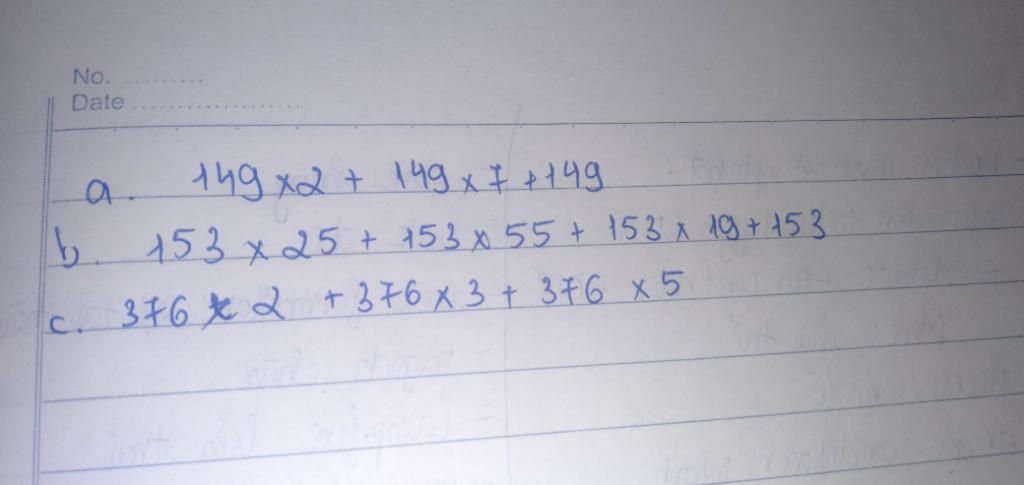 No. .........
Date ...................
a. 149 x 2 + 149 x 7 + 149
b. 153 x 25 + 153 x 55 + 153 x 19 + 153
c. 376 x 2 + 376 x 3 + 376 x 5